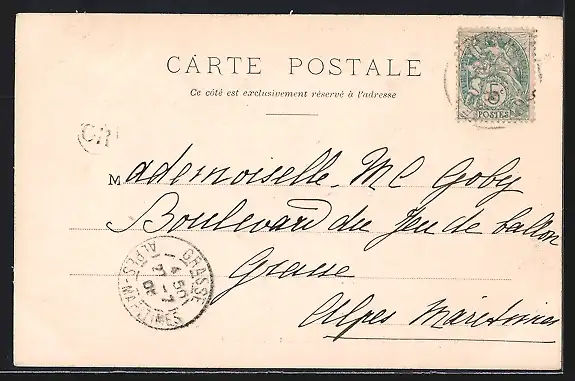 CARTE POSTALE
Ce côté est exclusivement réservé à l'adresse
5c
POSTES
OR
Mademoiselle M C Goby
Boulevard du Jeu de ballon
Grasse
Alpes Maritimes
GRASSE
ALPES-MARITIMES
4 50